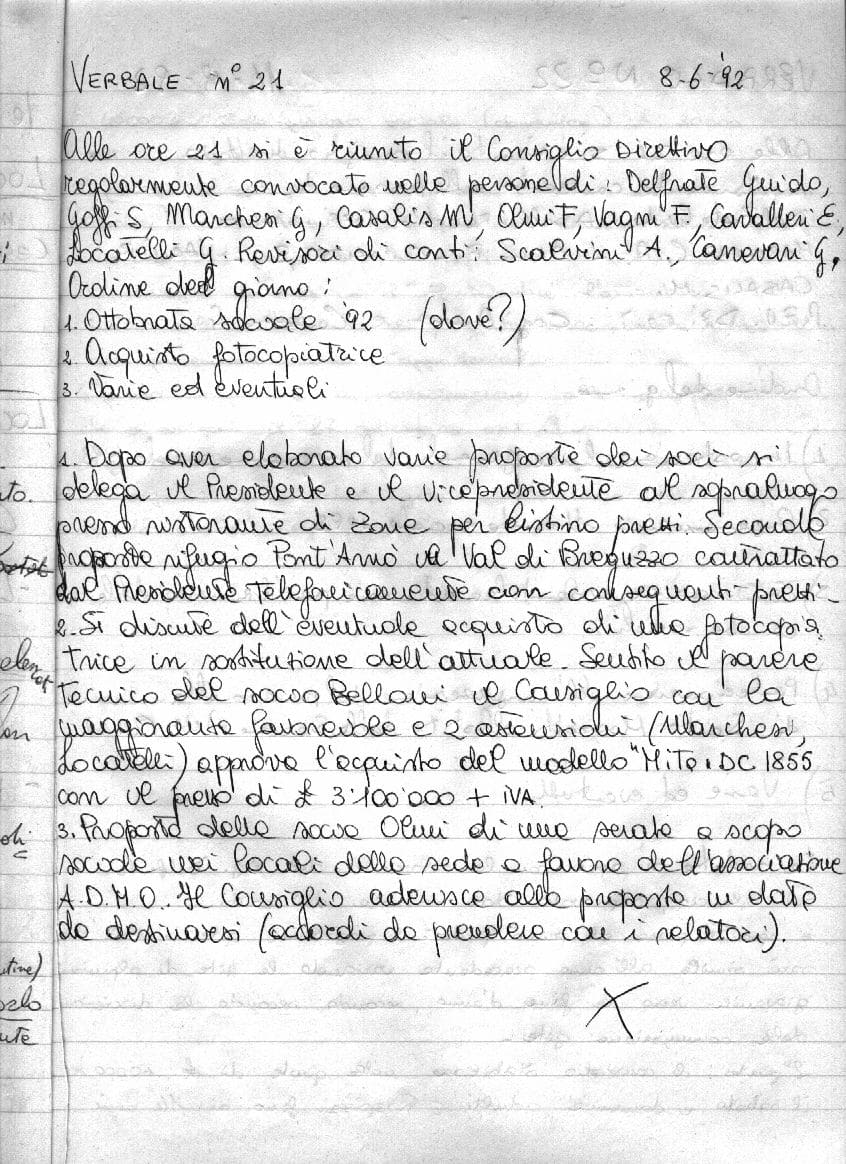 VERBALE N° 21 8-6-'92
Alle ore 21 si è riunito il Consiglio Direttivo
regolarmente convocato nelle persone di: Delfrate Guido,
Goffi S, Marchesi G, Casalis M, Olmi F, Vagni F., Cavalleri E,
Locatelli G. Revisori di conti: Scalvini A., Canevari G,
Ordine del giorno:
1. Ottobrata sociale '92 (dove?)
2. Acquisto fotocopiatrice
3. Varie ed eventuali
1. Dopo aver elaborato varie proposte dei soci si
delega il Presidente e il vicepresidente al sopraluogo
presso ristorante di Zone per listino prezzi. Seconda
proposta rifugio Pont'Arnò in Val di Breguzzo contrattato
dal Presidente telefonicamente con conseguenti prezzi.
2. Si discute dell'eventuale acquisto di una fotocopia
trice in sostituzione dell'attuale. Sentito il parere
tecnico del socio Belloni il Consiglio con la
maggioranza favorevole e 2 astensioni (Marchesi,
Locatelli) approva l'acquisto del modello "MITA. DC 1855
con il prezzo di £ 3'100'000 + IVA.
3. Proposta della socia Olmi di una serata a scopo
sociale nei locali della sede a favore dell'associazione
A.D.M.O. Il Consiglio aderisce alla proposta in data
da destinarsi (accordi da prendere con i relatori).